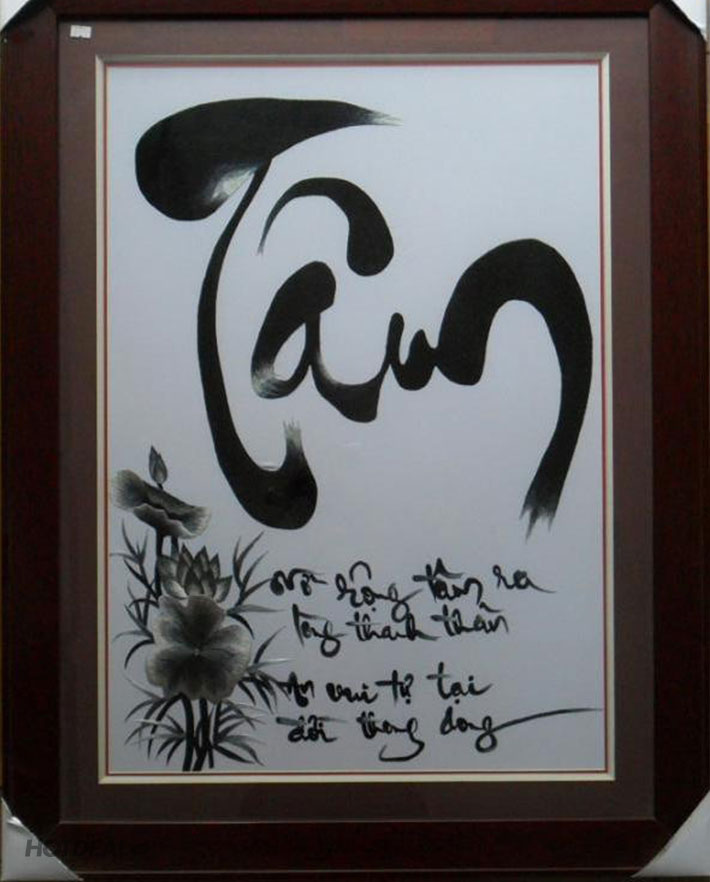 Tâm
Mở rộng tâm ra
lòng thanh thản
An vui tự tại
đời thong dong
HOTDEAL